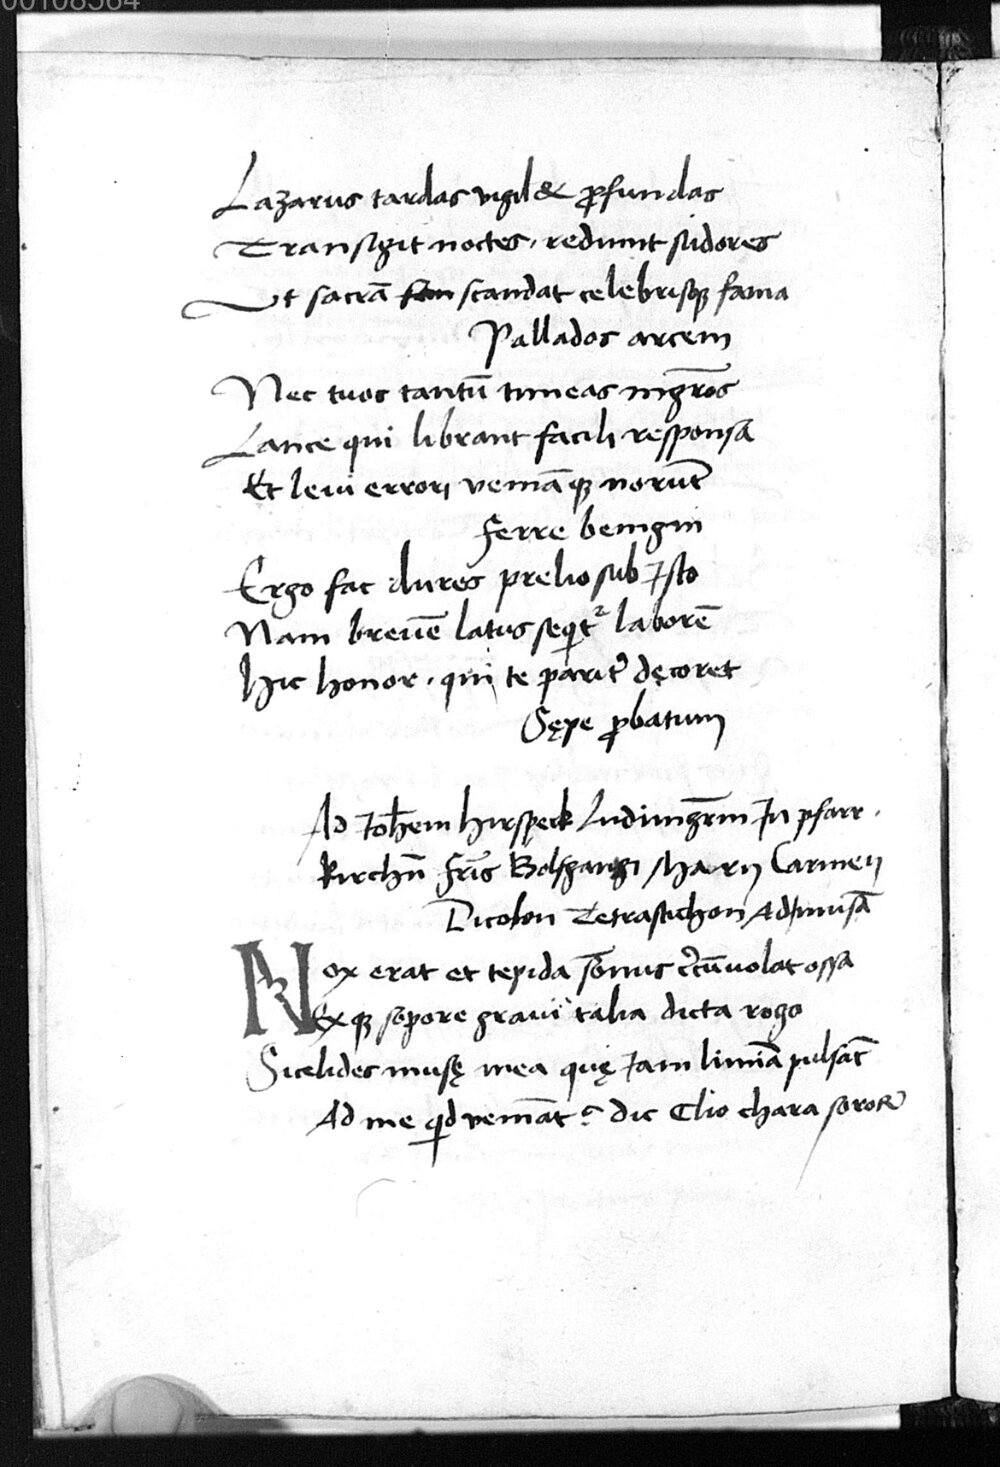 00108564
Lazarus tardas vigil & ꝓfundas
Transigit noctes, redimit sudores
Ut sacrā scandat celebrisqꝫ fama
Pallados arcem
Nec tuos tantū timeas nigros
Lance qui librant facili responsa
Et leui errori veniāqꝫ norūt
Ferre benigni
Ergo fac dures prelio sub isto
Nam breuē latus seqitᷣ laborē
Hic honor, qui te parit᾽ dęcoret
Sępe ꝓbatum
Ad Ioħem hirspeck Ludimgrm̄ In pfarr.
kirchn̄ fr̄is Bolfgangi Carmen
Dicolon Tetrastichon Ad musā
Nox erat et tepida som̄us circūuolat ossa
Exqꝫ sopore graui talia dicta rogo
Sicelides musę mea quę iam limina pulsāt
Ad me qid veniāt? dic Clio chara soror